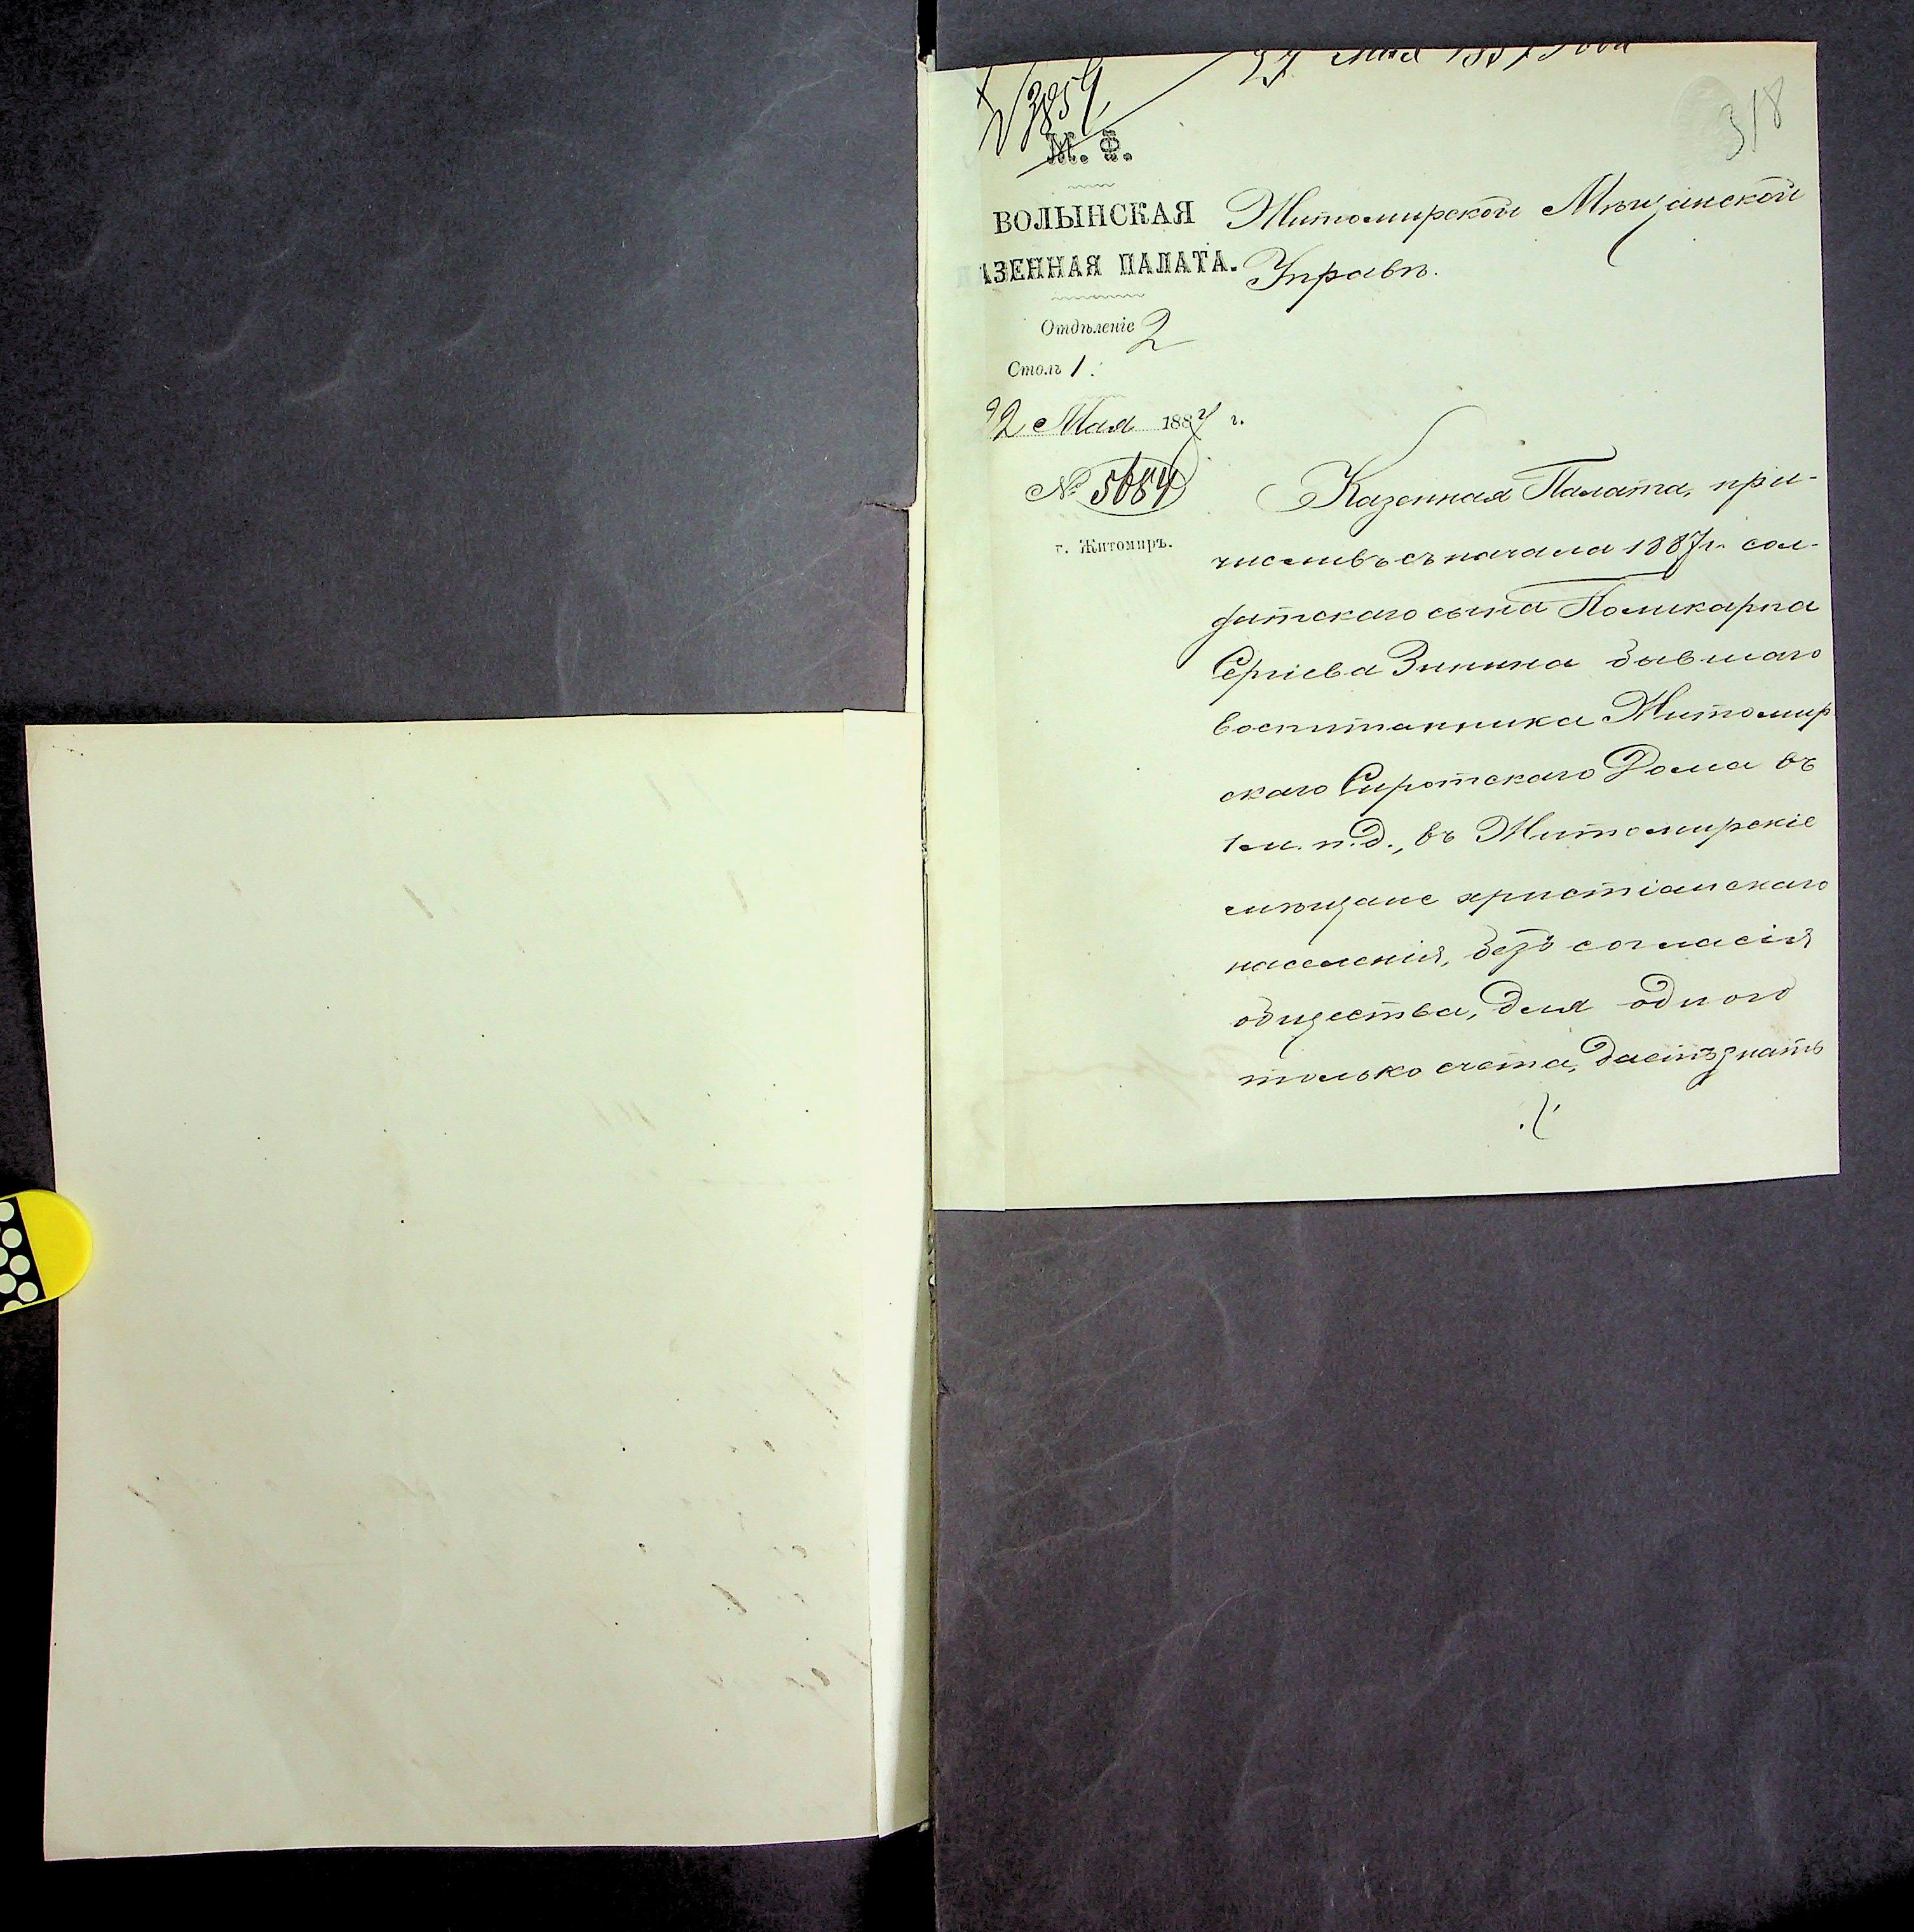 27 Мая 1887 года
№ 3859
318
М. Ф.
ВОЛЫНСКАЯ
АЗЕННАЯ ПАЛАТА.
Отдѣленіе 2
Столъ 1.
22 Мая 1887 г.
№ 5684
г. Житомиръ.
Житомирской Мѣщанской
Управѣ.
Казенная Палата, при-
числивъ съ начала 1887 г. сол-
датскаго сына Поликарпа
Сергіева Зинина бывшаго
воспитанника Житомир
скаго Сиротскаго Дома въ
1 м. п. д., въ Житомирскіе
мѣщане христіанскаго
населенія, безъ согласія
общества, для одного
только счета, даетъ знать